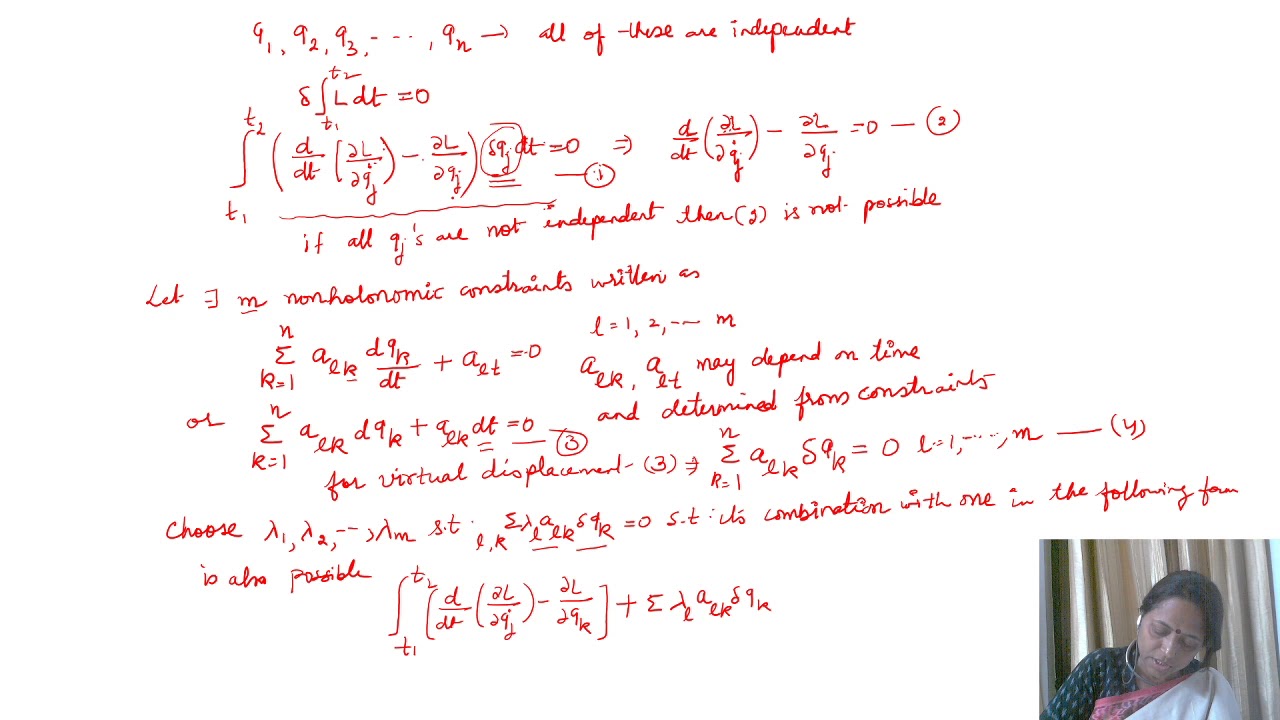 q₁, q₂, q₃, ----, qₙ → all of these are independent
δ∫_{t₁}^{t₂} L dt = 0
∫_{t₁}^{t₂} ( d/dt (∂L/∂q̇_j) − ∂L/∂q_j ) δq_j dt = 0 —① ⇒ d/dt (∂L/∂q̇_j) − ∂L/∂q_j = 0 — ②
if all q_j's are not independent then (2) is not possible
Let ∃ m nonholonomic constraints written as
∑_{k=1}^{n} a_{lk} dq_k/dt + a_{lt} = 0 l = 1, 2, --- m
a_{lk}, a_{lt} may depend on time
and determined from constraints
or ∑_{k=1}^{n} a_{lk} dq_k + a_{lk} dt = 0 — ③
for virtual displacement (3) ⇒ ∑_{k=1}^{n} a_{lk} δq_k = 0 l = 1, ----, m — (4)
Choose λ₁, λ₂, --, λm s.t. ∑_{l,k} λ_l a_{lk} δq_k = 0 s.t. its combination with one in the following form
is also possible
∫_{t₁}^{t₂} [ d/dt (∂L/∂q̇_j) − ∂L/∂q_k ] + Σ λ_l a_{lk} δq_k